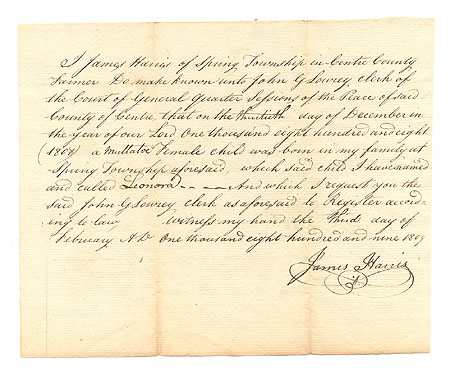 I James Harris of Spring Township in Centre County
Farmer Do make known unto John G Lowrey Clerk of
the Court of General Quarter Sessions of the Peace of said
County of Centre that on the thirtieth day of December in
the Year of our Lord One thousand eight hundred and eight
(1808) a Mullatoe Female Child was born in my family at
Spring Township aforesaid, which said Child I have named
and called Leonora - - - And which I request you the
said John G Lowrey Clerk as aforesaid to Register accord-
ing to law Witness my hand the third day of
February AD One thousand eight hundred and nine 1809
James Harris